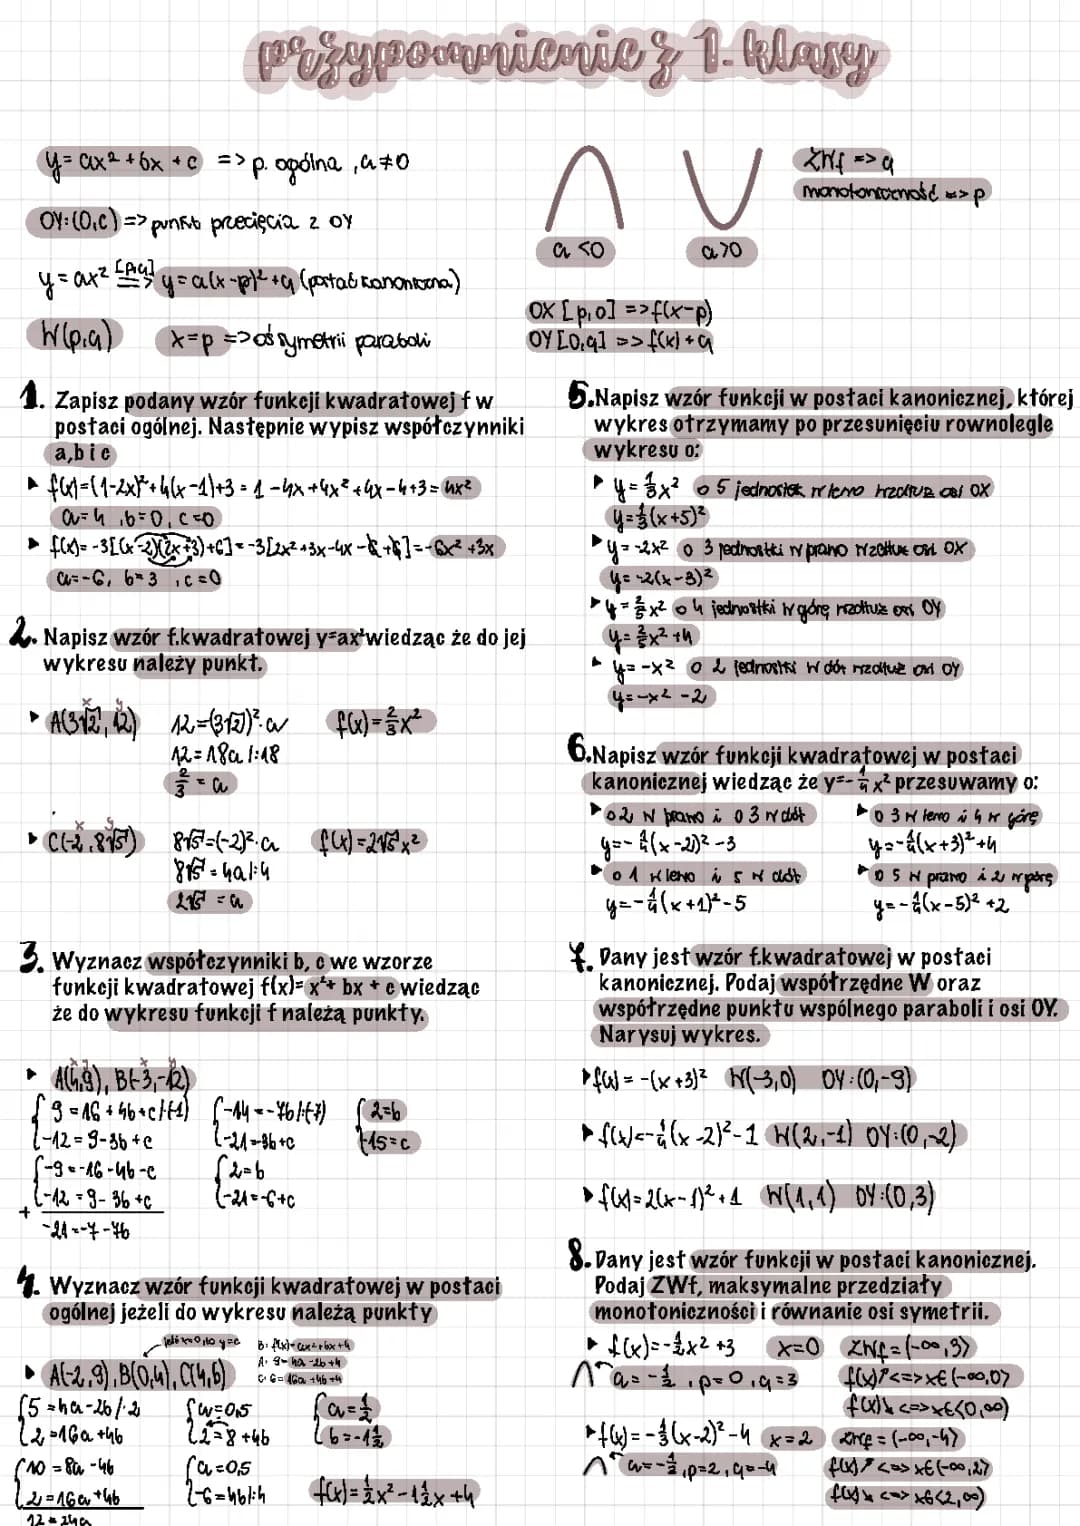 przypomnienie z 1. klasy
y = ax² + bx + c => p. ogólna , a ≠ 0
OY: (0,c) => punkt przecięcia z OY
y = ax² [p,q] => y = a(x-p)² + q (postać kanoniczna)
W(p,q) x=p => oś symetrii paraboli
a <0 a>0
ZWf => q
monotoniczność => p
OX [p,0] => f(x-p)
OY [0,q] => f(x) + q
1. Zapisz podany wzór funkcji kwadratowej f w
postaci ogólnej. Następnie wypisz współczynniki
a,b i c
f(x)=(1-2x)²+4(x-1)+3 = 1 -4x +4x² +4x -4+3 = 4x²
a=4 , b=0, c=0
f(x)= -3[(x-2)(2x+3)+6] = -3[2x² +3x-4x -6 +6] = -6x² +3x
a=-6, b=3 , c=0
2. Napisz wzór f.kwadratowej y=ax² wiedząc że do jej
wykresu należy punkt.
x y
A(3√2, 12) 12=(3√2)²·a f(x)=2/3x²
12=18a /:18
2/3 = a
x y
C(-2, 8√5) 8√5=(-2)²·a f(x)=2√5x²
8√5 = 4a/:4
2√5 = a
3. Wyznacz współczynniki b, c we wzorze
funkcji kwadratowej f(x)= x²+ bx + c wiedząc
że do wykresu funkcji f należą punkty.
x y x y
A(4,9), B(-3,-12)
{9=16+4b+c/·(-1) {-14=-7b/:(-7) {2=b
{-12=9-3b+c {-21=-3b+c {-15=c
{-9=-16-4b-c {2=b
{-12=9-3b+c {-21=-6+c
+
-21=-7-7b
4. Wyznacz wzór funkcji kwadratowej w postaci
ogólnej jeżeli do wykresu należą punkty
jeśli x=0, to y=c B: f(x)=ax²+bx+4
A: 9=4a-2b+4
A(-2,9), B(0,4), C(4,6) C: 6=16a+4b+4
{5=4a-2b/·2 {a=0,5 {a=1/2
{2=16a+4b {2=8+4b {b=-1 1/2
{10=8a-4b {a=0,5
{2=16a+4b {-6=4b/:4 f(x)=1/2x²-1 1/2x+4
12=24a
5. Napisz wzór funkcji w postaci kanonicznej, której
wykres otrzymamy po przesunięciu rownolegle
wykresu o:
y=1/3x² o 5 jednostek w lewo wzdłuż osi OX
y=1/3(x+5)²
y=-2x² o 3 jednostki w prawo wzdłuż osi OX
y=-2(x-3)²
y=2/5x² o 4 jednostki w górę wzdłuż osi OY
y=2/5x²+4
y=-x² o 2 jednostki w dół wzdłuż osi OY
y=-x²-2
6. Napisz wzór funkcji kwadratowej w postaci
kanonicznej wiedząc że y=-1/4x² przesuwamy o:
o 2 w prawo i o 3 w dół o 3 w lewo i 4 w górę
y=-1/4(x-2)²-3 y=-1/4(x+3)²+4
o 1 w lewo i 5 w dół o 5 w prawo i 2 w górę
y=-1/4(x+1)²-5 y=-1/4(x-5)²+2
7. Dany jest wzór f.kwadratowej w postaci
kanonicznej. Podaj współrzędne W oraz
współrzędne punktu wspólnego paraboli i osi OY.
Narysuj wykres.
f(x)=-(x+3)² W(-3,0) OY:(0,-9)
f(x)=-1/4(x-2)²-1 W(2,-1) OY:(0,-2)
f(x)=2(x-1)²+1 W(1,1) OY:(0,3)
8. Dany jest wzór funkcji w postaci kanonicznej.
Podaj ZWf, maksymalne przedziały
monotoniczności i równanie osi symetrii.
f(x)=-1/2x²+3 x=0 ZWf=(-∞,3>
a=-1/2, p=0, q=3 f(x)↗<=>x∈(-∞,0>
f(x)↘<=>x∈<0,∞)
f(x)=-1/3(x-2)²-4 x=2 ZWf=(-∞,-4>
a=-1/3, p=2, q=-4 f(x)↗<=>x∈(-∞,2>
f(x)↘<=>x∈<2,∞)